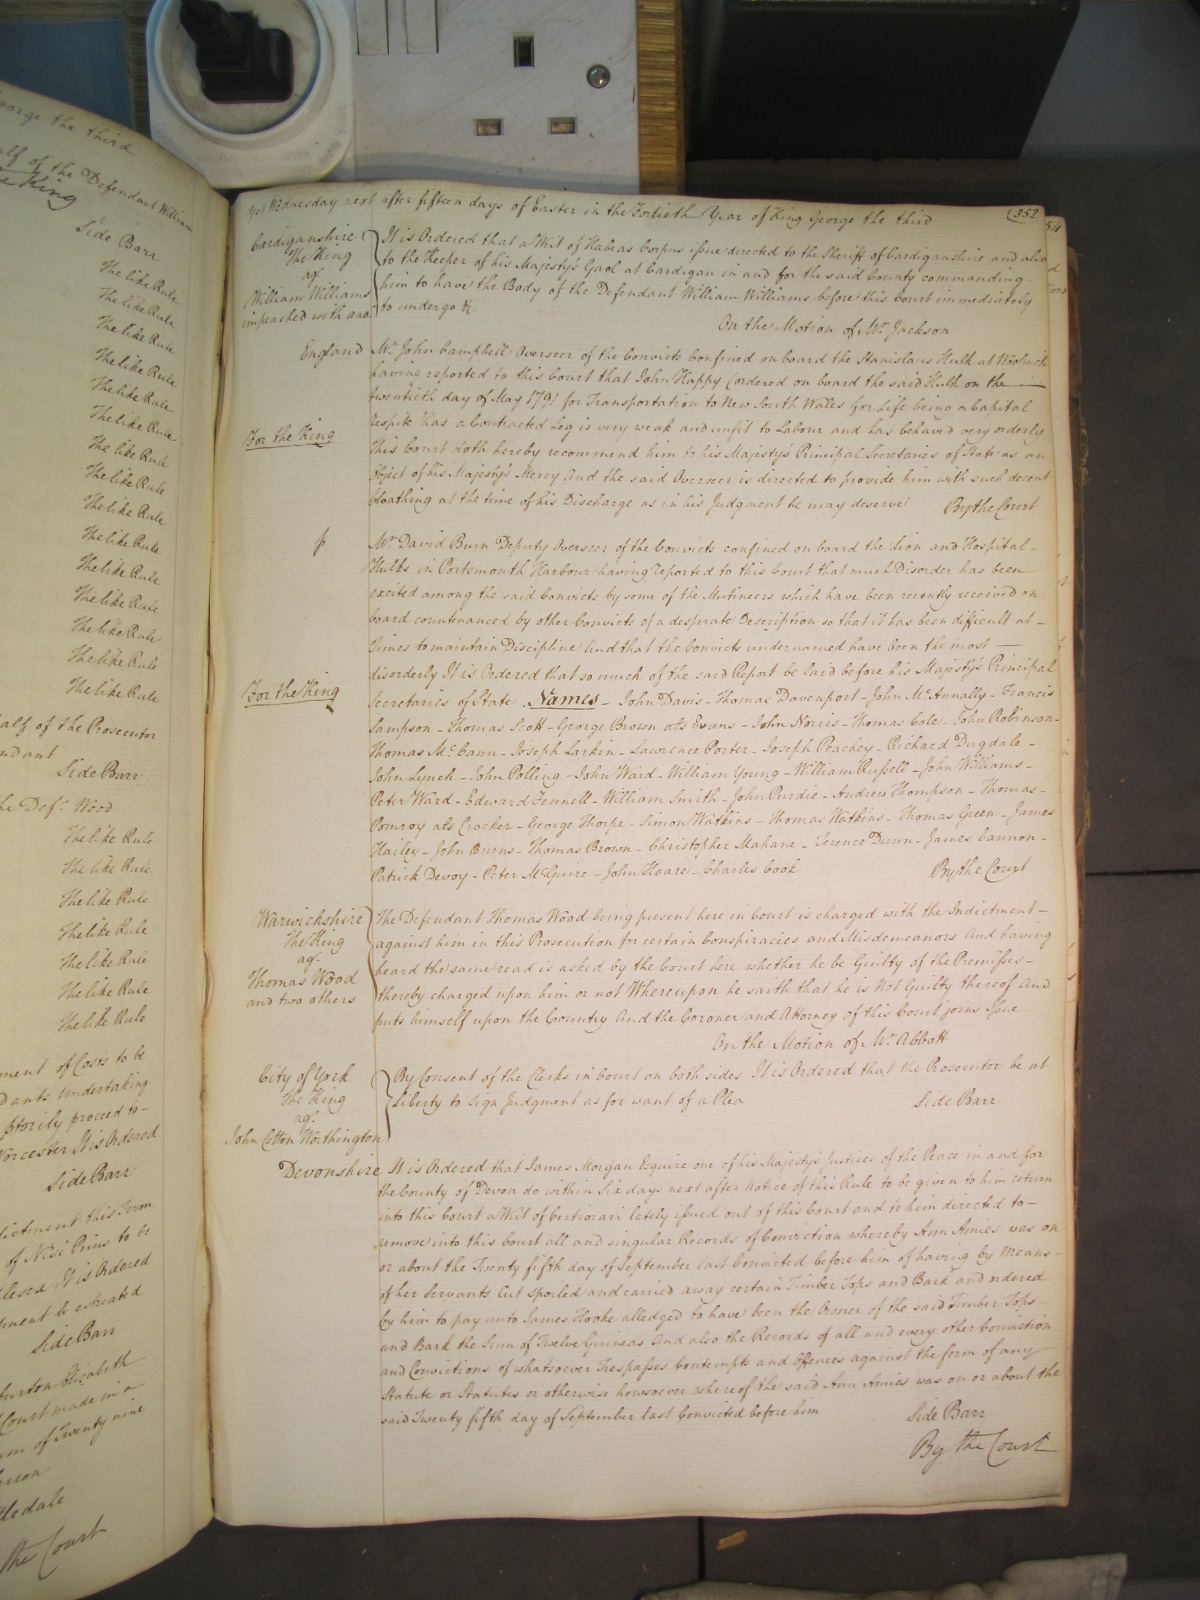 eorge the third
alf of the Defendant William
e King
Side Barr
The like Rule
The like Rule
The like Rule
The like Rule
The like Rule
The like Rule
The like Rule
The like Rule
The like Rule
The like Rule
The like Rule
The like Rule
The like Rule
The like Rule
The like Rule
alf of the Prosecutor
ndant
Side Barr
he Deft. Wood
The like Rule
The like Rule
The like Rule
The like Rule
The like Rule
The like Rule
The like Rule
ment of Costs to be
dants undertaking
ptorily proceed to -
Worcester It is Ordered
Side Barr
dictment this Term
of Nisi Prius to be
It is Ordered
ment be estreated
Side Barr
burton Elizabeth
Court made in a
um of Twenty nine
ledale
the Court
Yet Wednesday next after fifteen days of Easter in the Fortieth Year of King George the third
352
Cardiganshire
The King
agt.
William Williams
impeached with anor.
It is Ordered that a Writ of Habeas Corpus issue directed to the Sheriff of Cardiganshire and also
to the Keeper of his Majesty's Gaol at Cardigan in and for the said County commanding
him to have the Body of the Defendant William Williams before this Court immediately
to undergo &c
On the Motion of Mr. Jackson
England
For the King
Mr. John Campbell Overseer of the Convicts Confined on board the Stanislaus Hulk at Woolwich
having reported to this Court that John Happy (ordered on board the said Hulk on the
twentieth day of May 1791 for Transportation to New South Wales for Life being a Capital
respite has a Contracted Leg is very weak and unfit to Labour and has behaved very orderly
This Court doth hereby recommend him to his Majesty's Principal Secretaries of State as an
Object of his Majesty's Mercy And the said Overseer is directed to provide him with such decent
Cloathing at the time of his Discharge as in his Judgment he may deserve By the Court
For the King
Mr. David Burn Deputy Overseer of the Convicts confined on board the Lion and Hospital -
Hulks in Portsmouth Harbour having reported to this Court that much Disorder has been
excited among the said Convicts by some of the Mutineers which have been recently received on
board countenanced by other Convicts of a desperate Description so that it has been difficult at -
Times to maintain Discipline And that the Convicts undernamed have been the most
disorderly It is Ordered that so much of the said Report be laid before his Majesty's Principal
Secretaries of State Names - John Davis - Thomas Davenport - John McAnnally - Francis
Sampson - Thomas Scott - George Brown ats Evans - John Norris - Thomas Cole - John Robinson -
Thomas McCann - Joseph Larkin - Lawrence Porter - Joseph Peachey - Richard Dugdale -
John Lynch - John Polling - John Ward - William Young - William Russell - John Williams -
Peter Ward - Edward Fennell - William Smith - John Purdie - Andrew Thompson - Thomas -
Pomroy ats Crocker - George Thorpe - Simon Watkins - Thomas Watkins - Thomas Green - James
Hailey - John Burns - Thomas Brown - Christopher Mahane - Terence Dunn - James Cannon -
Patrick Devoy - Peter McGuire - John Hoare - Charles Cook By the Court
Warwickshire
The King
agt.
Thomas Wood
and two others
The Defendant Thomas Wood being present here in Court is charged with the Indictment -
against him in this Prosecution for certain Conspiracies and Misdemeanors And having
heard the same read is asked by the Court here whether he be Guilty of the Premisses -
thereby charged upon him or not Whereupon he saith that he is Not Guilty thereof And
puts himself upon the Country And the Coroner and Attorney of this Court joins Issue
On the Motion of Mr. Abbott
City of York
The King
agt.
John Cotton Worthington
By Consent of the Clerks in Court on both sides It is Ordered that the Prosecutor be at
Liberty to sign Judgment as for want of a Plea Side Barr
Devonshire
It is Ordered that James Morgan Esquire one of his Majesty's Justices of the Peace in and for
the County of Devon do within Six days next after Notice of this Rule to be given to him return
into this Court a Writ of Certiorari lately issued out of this Court and to him directed to -
remove into this Court all and singular Records of Conviction whereby Ann Amies was on
or about the Twenty fifth day of September last Convicted before him of having by Means -
of her Servants Cut spoiled and carried away certain Timber Tops and Bark and ordered
by him to pay unto James Hooke alledged to have been the Owner of the said Timber Tops -
and Bark the Sum of Twelve Guineas And also the Records of all and every other Conviction
and Convictions of whatsoever Trespasses Contempts and Offences against the form of any
Statute or Statutes or otherwise howsoever whereof the said Ann Amies was on or about the
said Twenty fifth day of September last Convicted before him Side Barr
By the Court